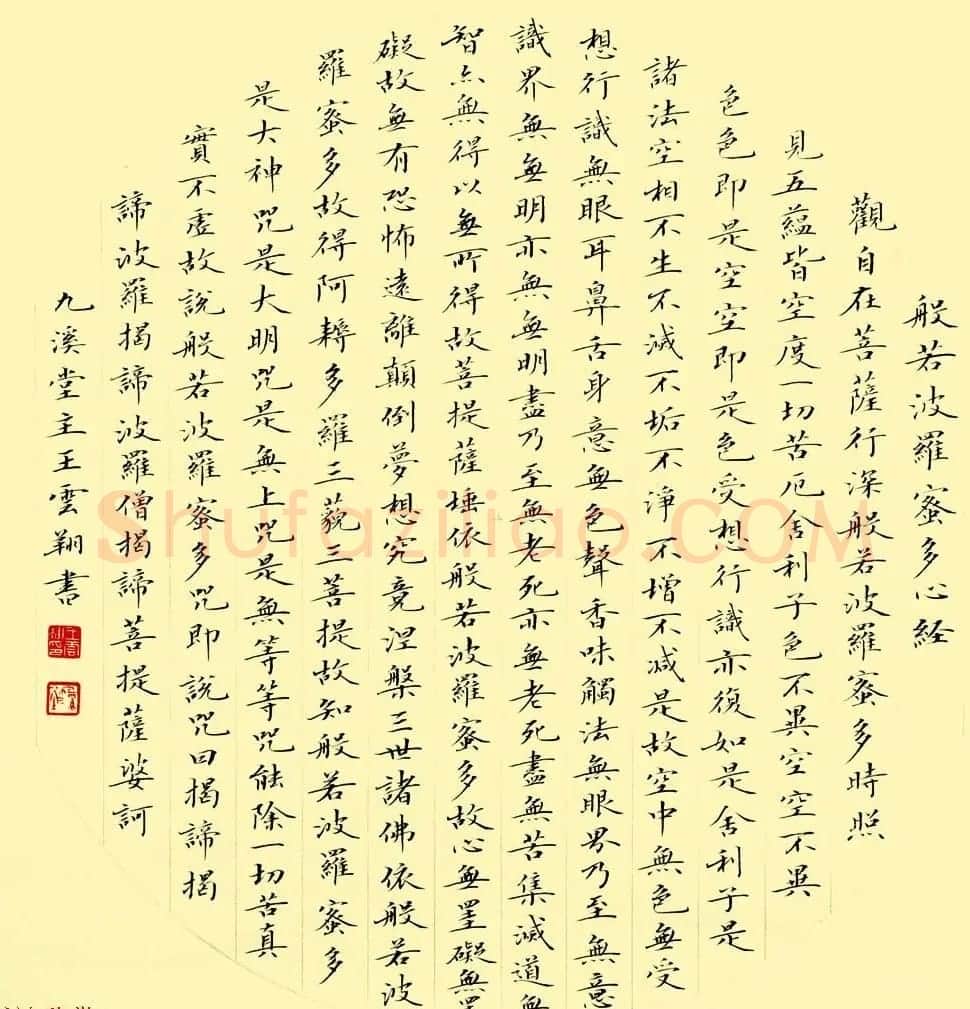 般若波羅蜜多心経
觀自在菩薩行深般若波羅蜜多時照
見五蘊皆空度一切苦厄舍利子色不異空空不異
色色即是空空即是色受想行識亦復如是舍利子是
諸法空相不生不滅不垢不淨不增不減是故空中無色無受
想行識無眼耳鼻舌身意無色聲香味觸法無眼界乃至無意
識界無無明亦無無明盡乃至無老死亦無老死盡無苦集滅道無
智亦無得以無所得故菩提薩埵依般若波羅蜜多故心無罣礙無罣
礙故無有恐怖遠離顛倒夢想究竟涅槃三世諸佛依般若波
羅蜜多故得阿耨多羅三藐三菩提故知般若波羅蜜多
是大神咒是大明咒是無上咒是無等等咒能除一切苦真
實不虛故說般若波羅蜜多咒即說咒曰揭諦揭
諦波羅揭諦波羅僧揭諦菩提薩婆訶
九溪堂主王雲翔書
Shufaziliao.COM